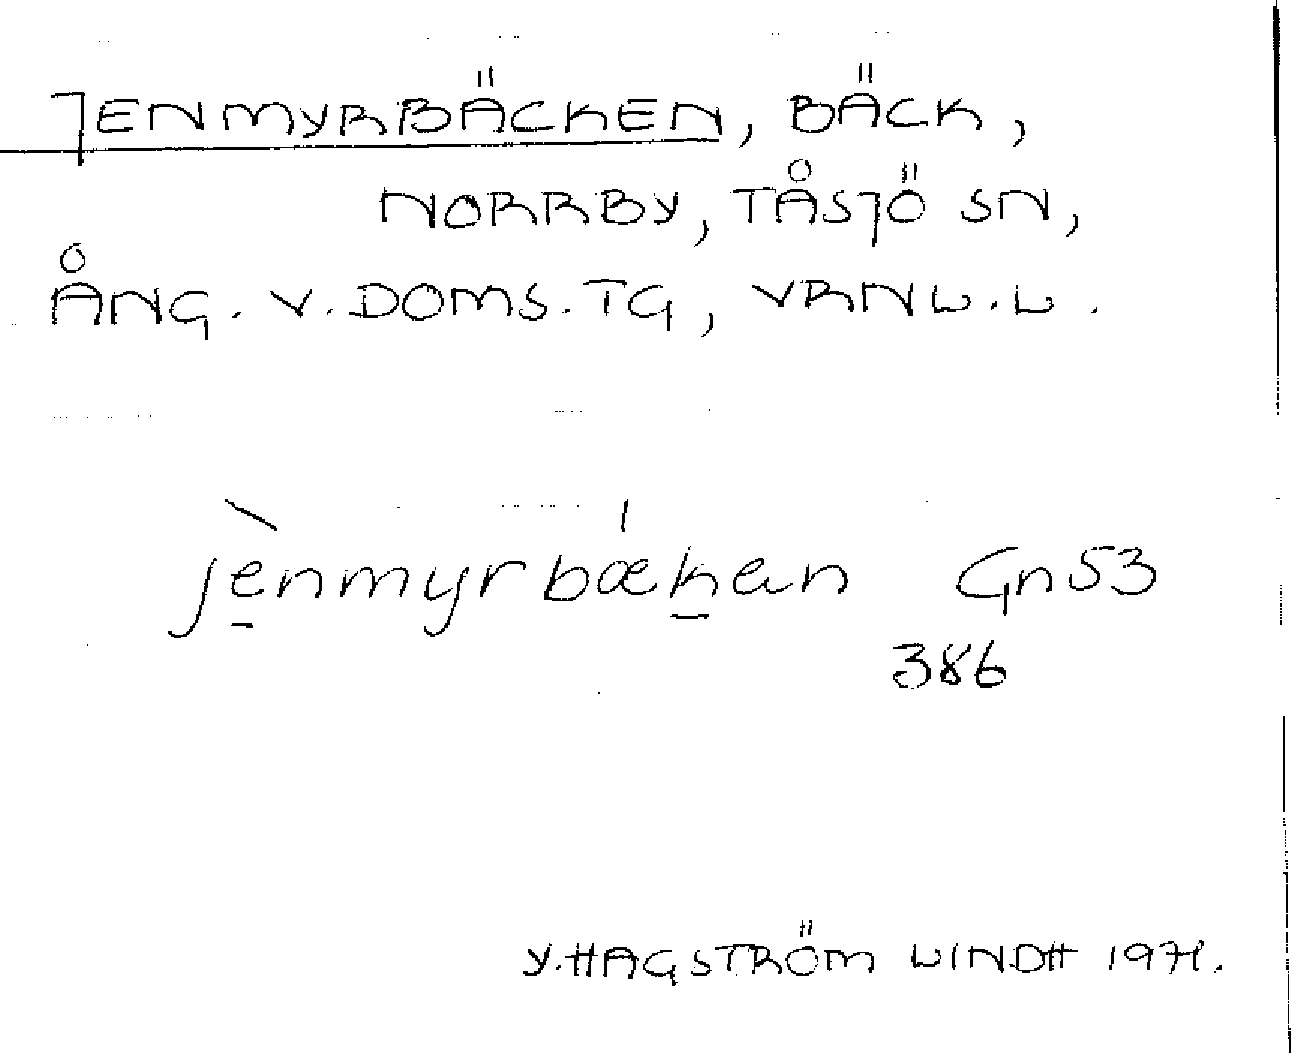 JENMYRBÄCKEN, BÄCK,
NORRBY, TÅSJÖ SN,
ÅNG. V. DOMS. TG, VRNL.L.
jènmyrbækan Gn53
386
Y. HAGSTRÖM LINDH 1971.